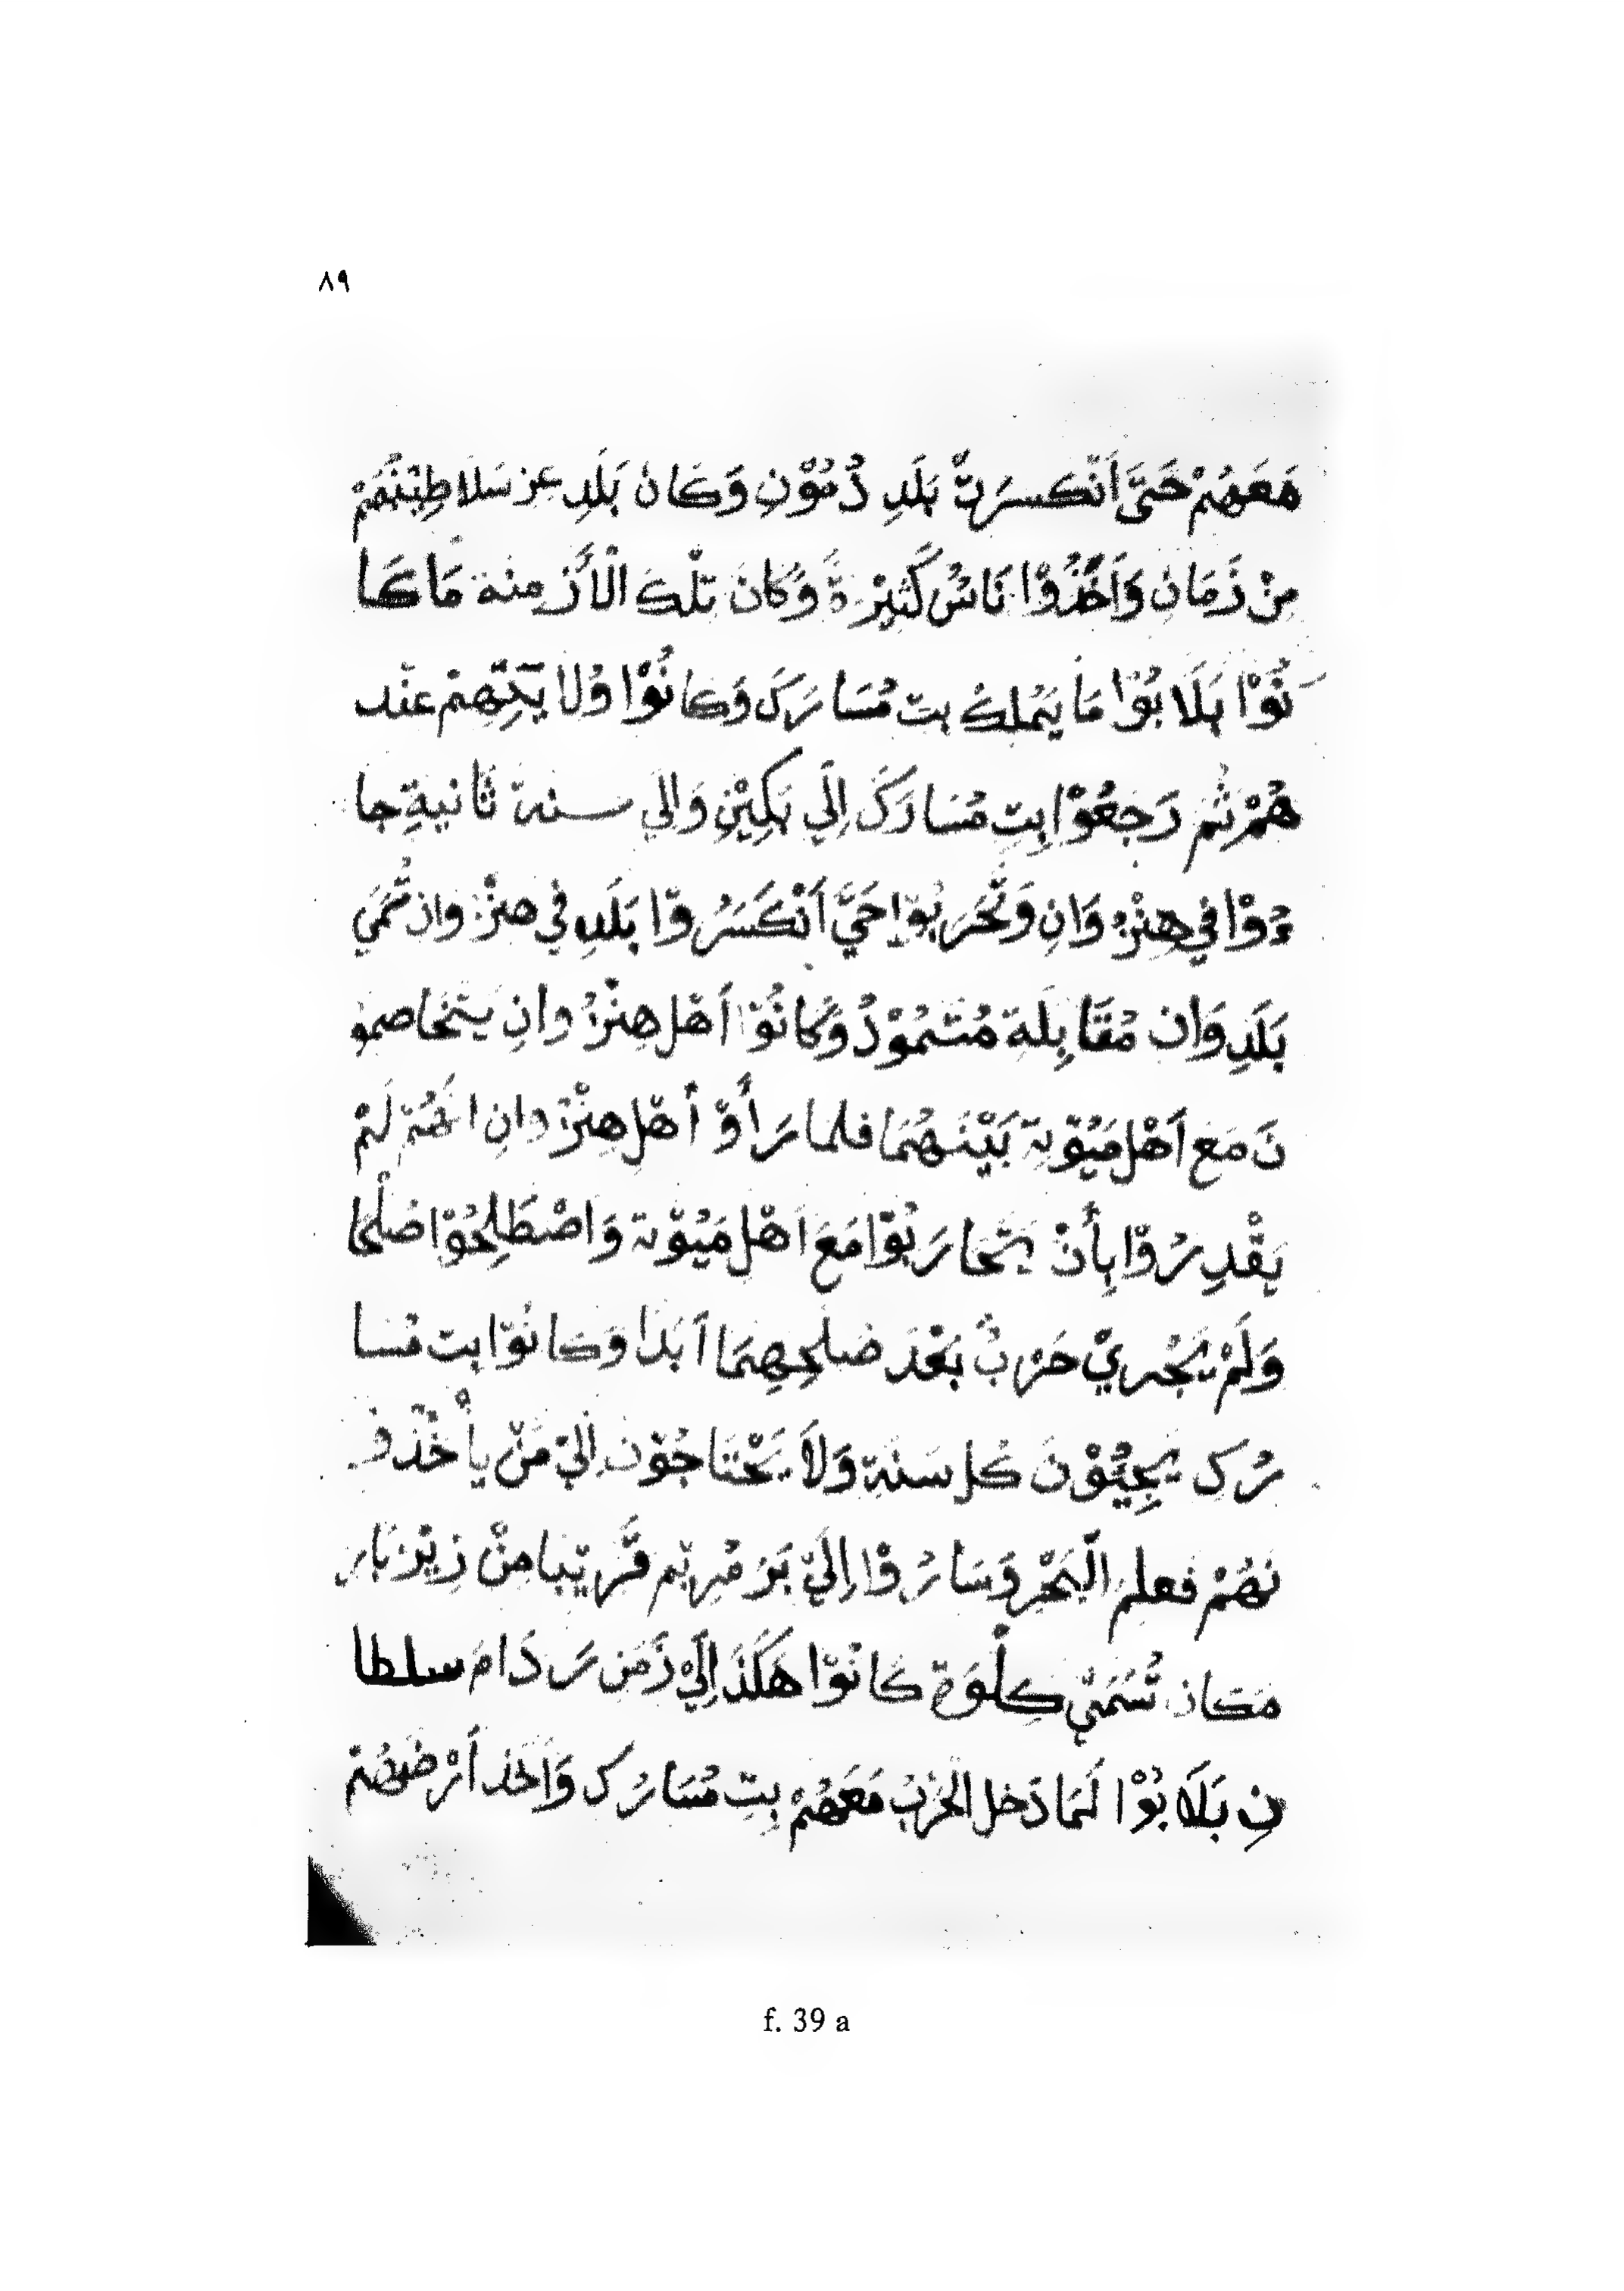 ٨٩
مَعَهُمْ حَتَّى أَنْكَسَرَتْ بَلَدِ دُمُوْنِ وَكَانْ بَلَدِ عِز سَلَاطِيْنُهُمْ
مِنْ زَمَانْ وَأَخَذُوْا نَاسُ كَثِيْرَةً وَكَانَ تِلْكَ الْأَزْمِنة مَاكَا
نُوْا بَلَابُوْا مَا يَمْلِكُ بت مُسَارَكَ وَكَانُوْا وُلَا يَتِهِمْ عنْد
هُمْ ثُم رَجَعُوْا بِتِ مُسَارَكَ اِلَي بَكِيْنِ وَالِي سنة ثَانيةِ جا
ءُوْا في هِنْزُوَانِ وَتَحَرَبُوْا حَتَّي أَنْكَسَرُوْا بَلَدِ في هنْزُوان تُسَمَي
بَلَدِ وَان مُقَابِلَة مُتْسَمُوْدُ وَكَانُوْا أَهْل هِنْزُوانِ يَتخَاصمو
نَ مَعَ أَهْل مَيُوْتة بَيْنَهُمَا فلما رَأَوْ أهْل هِنْزُوانِ انهُمْ لَمْ
يَقْدِرُوْا بِأَنْ يَتحَارَبُوْا مَعَ اَهْل مَيُوْتة وَاصْطَلِحُوْا صُلْحًا
وَلَمْ يَجْري حَرْبٌ بَعْدَ صلحِهِمَا اَبَدًا وَكَانُوْا بت مُسا
رَك يَجِيُوْنَ كُل سَنَة وَلَا يَحْتَاجُوْنَ اِلَي مَنْ يأخُذُو
نَهُمْ فعلم الْبَحْر وَسَارُوْا اِلَيْ بَرَ مُرِيْم قَرِيْبا مِنْ زِيْزبَار
مَكَان تُسَمَيْ كِلْوَة كَانُوْا هَكَذَ اِلَيْ زَمَن رَدَامَ سلطا
نِ بَلَابُوْا لَمَا دَخل الحَرْبُ مَعَهُمْ بِتِ مُسَارُك وَاَخَذ أَرْضهُمْ
f. 39 a